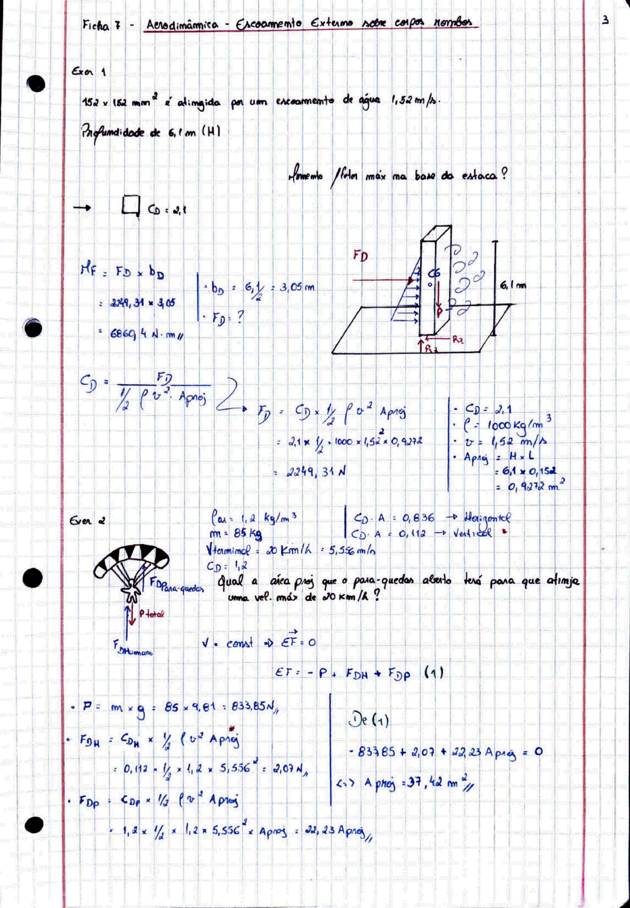 3
Ficha 7 - Aerodinâmica - Escoamento Externo sobre corpos rombos
Exer 1
152 x 152 mm² é atingida por um escoamento de água 1,52 m/s.
Profundidade de 6,1 m (H)
Momento máx na base da estaca?
→ CD = 2,1
MF = FD x bD
= 2249,31 x 3,05
= 6860,4 N·m //
· bD = 6,1/2 = 3,05 m
· FD = ?
FD
CG
P
6,1 m
R2
R1
CD = FD / (1/2 ρ v² · Aproj)
FD = CD x 1/2 ρ v² Aproj
= 2,1 x 1/2 x 1000 x 1,52² x 0,9272
= 2249,31 N
· CD = 2,1
· ρ = 1000 Kg/m³
· v = 1,52 m/s
· Aproj = H x L
= 6,1 x 0,152
= 0,9272 m²
Exer 2
ρar = 1,2 kg/m³
m = 85 Kg
Vterminal = 20 Km/h = 5,556 m/s
CD = 1,2
CD · A = 0,836 → Horizontal
CD · A = 0,112 → Vertical *
Qual a área proj que o para-quedas aberto terá para que atinja
uma vel. máx de 20 Km/h?
FDPara-quedas
P total
FDHumano
V = const => EF = 0
EF = - P + FDH + FDP (1)
· P = m x g = 85 x 9,81 = 833,85 N //
· FDH = CDH x 1/2 ρ v² Aproj *
= 0,112 x 1/2 x 1,2 x 5,556² = 2,07 N //
· FDP = CDP x 1/2 ρ v² Aproj
= 1,2 x 1/2 x 1,2 x 5,556² x Aproj = 22,23 Aproj //
De (1)
- 833,85 + 2,07 + 22,23 Aproj = 0
<=> Aproj = 37,42 m² //